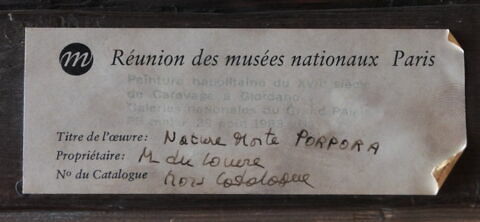 m Réunion des musées nationaux Paris
Peinture napolitaine du XVIIe siècle
de Caravage à Giordano
Galeries nationales du Grand Palais
29 août 1983
Titre de l'œuvre: Nature Morte PORPORA
Propriétaire: M du Louvre
No du Catalogue hors catalogue